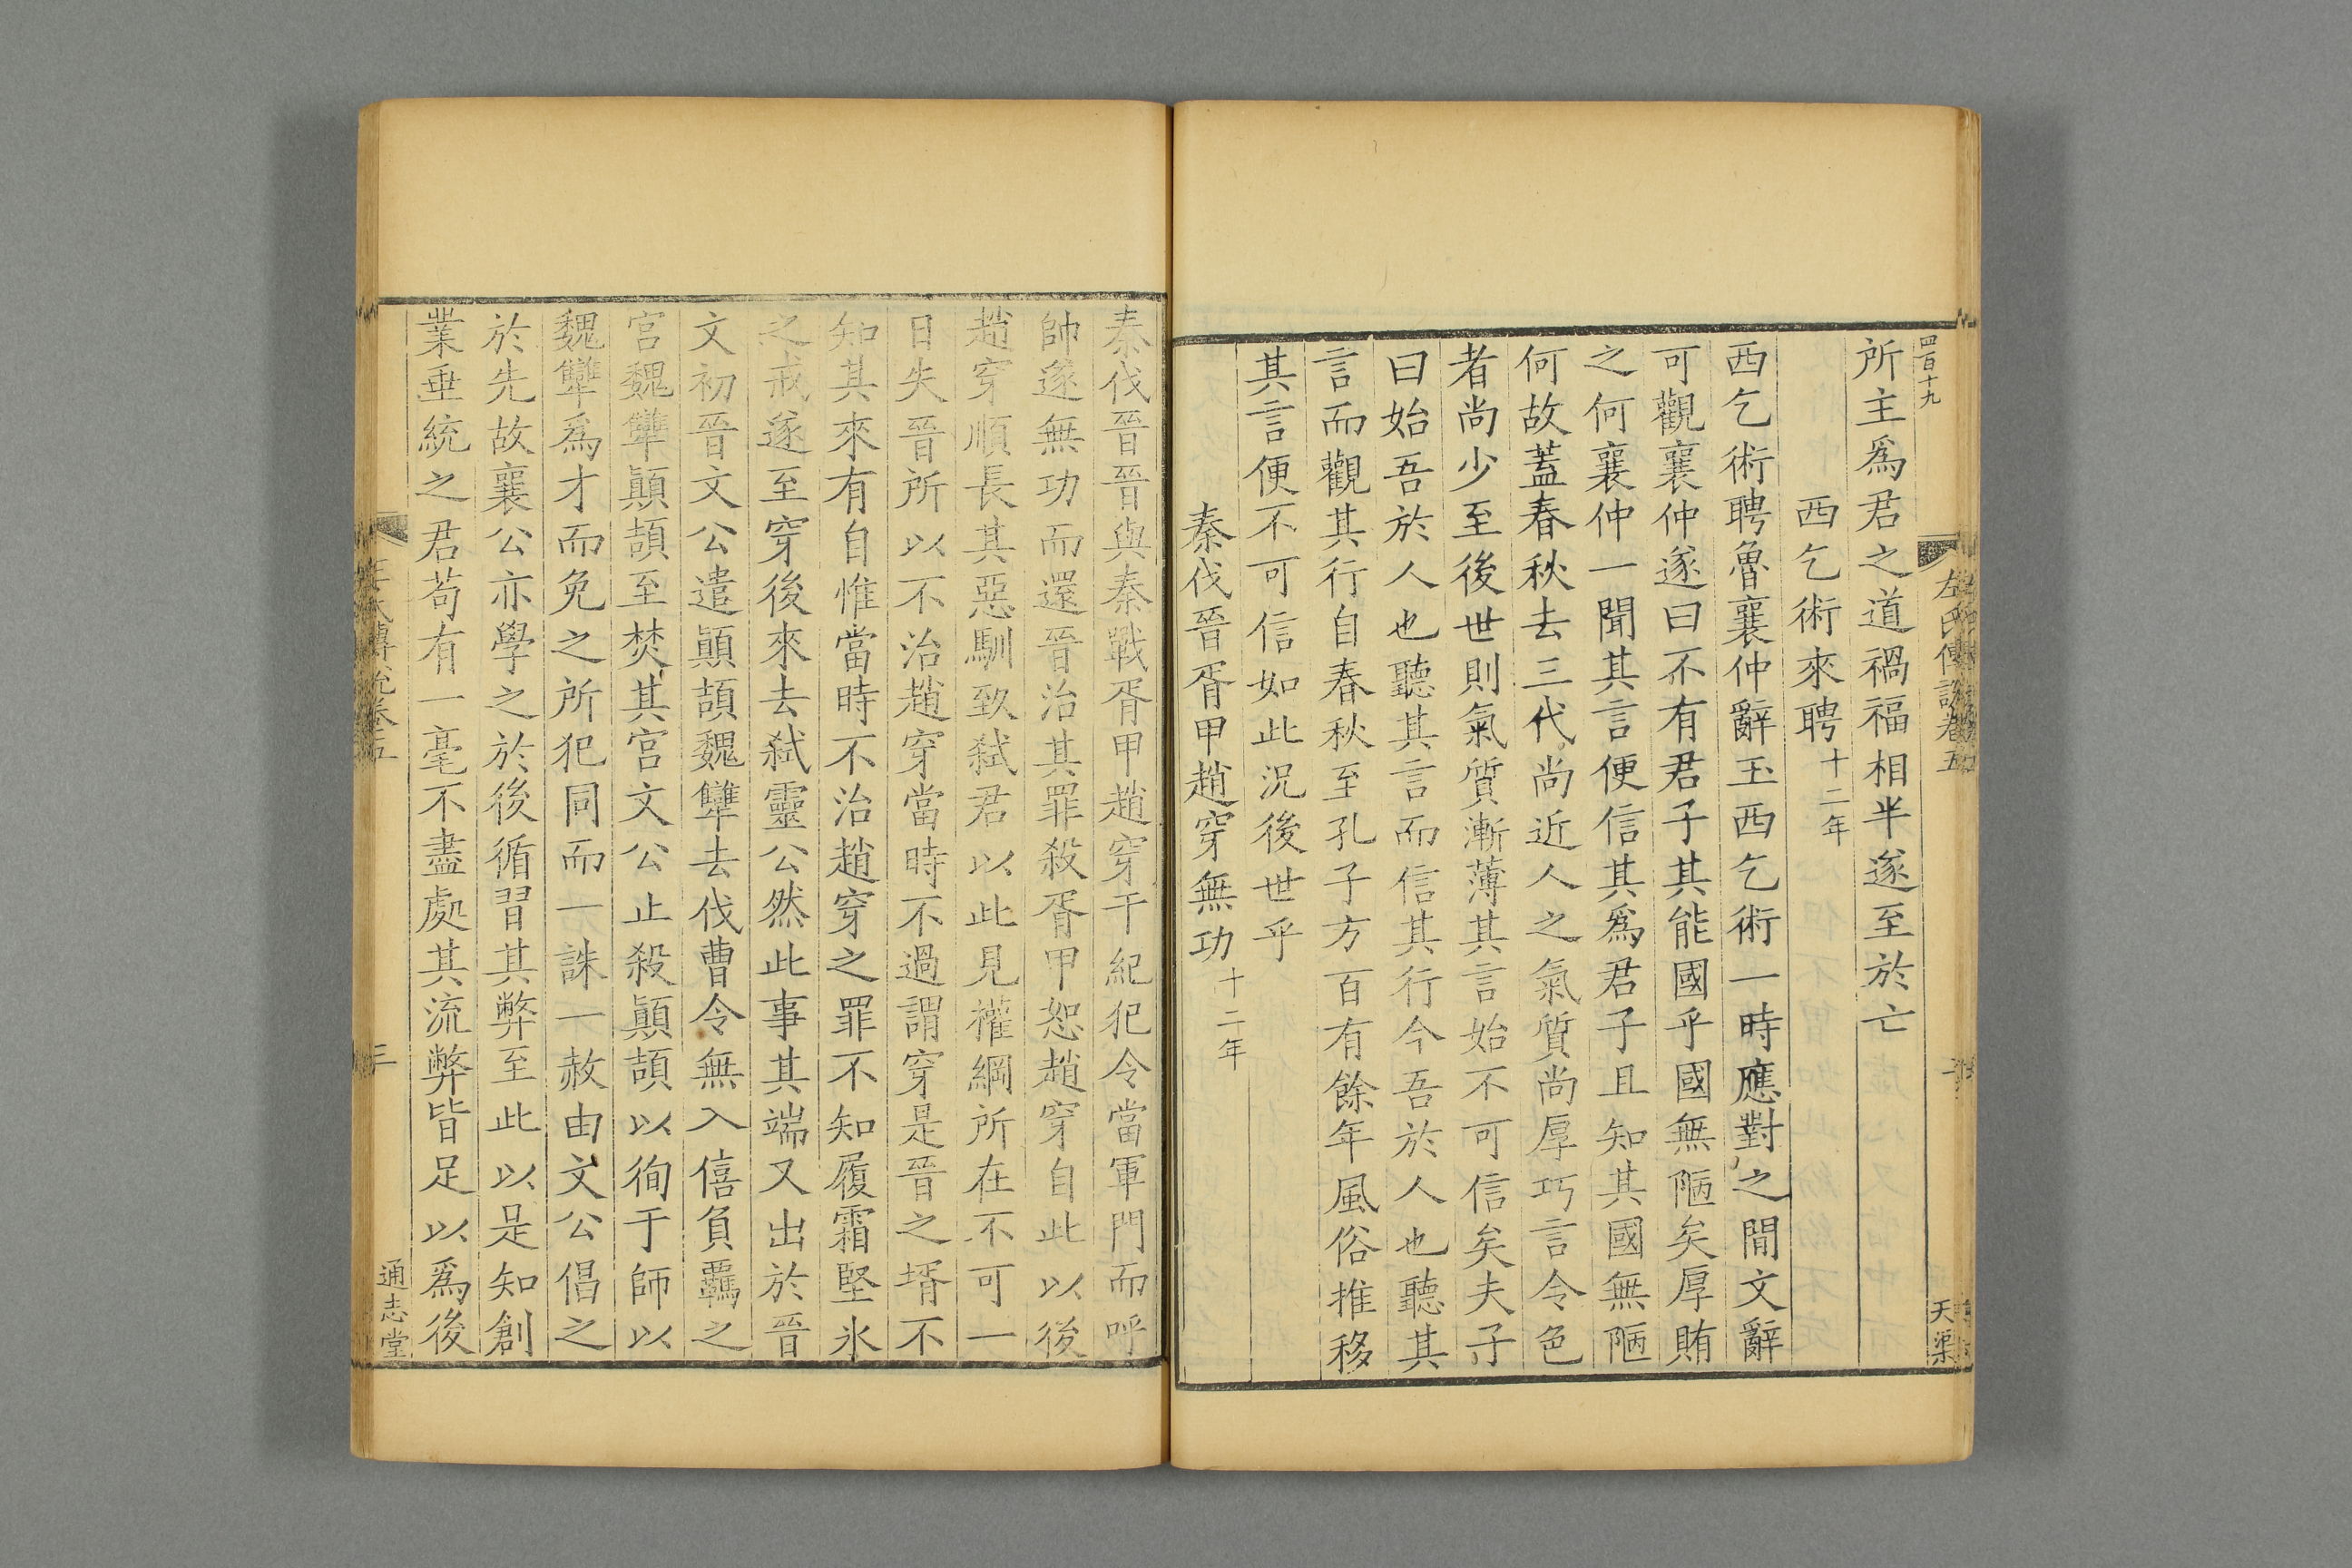 四百十九
所主爲君之道禍福相半遂至於亡
西乞術來聘十二年
西乞術聘魯襄仲辭玉西乞術一時應對之間文辭
可觀襄仲遂曰不有君子其能國乎國無陋矣厚賄
之何襄仲一聞其言便信其爲君子且知其國無陋
何故蓋春秋去三代尚近人之氣質尚厚巧言令色
者尚少至後世則氣質漸薄其言始不可信矣夫子
曰始吾於人也聽其言而信其行今吾於人也聽其
言而觀其行自春秋至孔子方百有餘年風俗推移
其言便不可信如此況後世乎
秦伐晉胥甲趙穿無功十二年
左氏傳說卷五
天渠
秦伐晉晉與秦戰胥甲趙穿干紀犯令當軍門而呼
帥遂無功而還晉治其罪殺胥甲恕趙穿自此以後
趙穿順長其惡馴致弒君以此見權綱所在不可一
日失晉所以不治趙穿當時不過謂穿是晉之壻不
知其來有自惟當時不治趙穿之罪不知履霜堅氷
之戒遂至穿後來去弒靈公然此事其端又出於晉
文初晉文公遣顚頡魏犨去伐曹令無入僖負羈之
宮魏犨顚頡至焚其宮文公止殺顚頡以徇于師以
魏犨爲才而免之所犯同而一誅一赦由文公倡之
於先故襄公亦學之於後循習其弊至此以是知創
業垂統之君苟有一毫不盡處其流弊皆足以爲後
左氏傳說卷五
三
通志堂